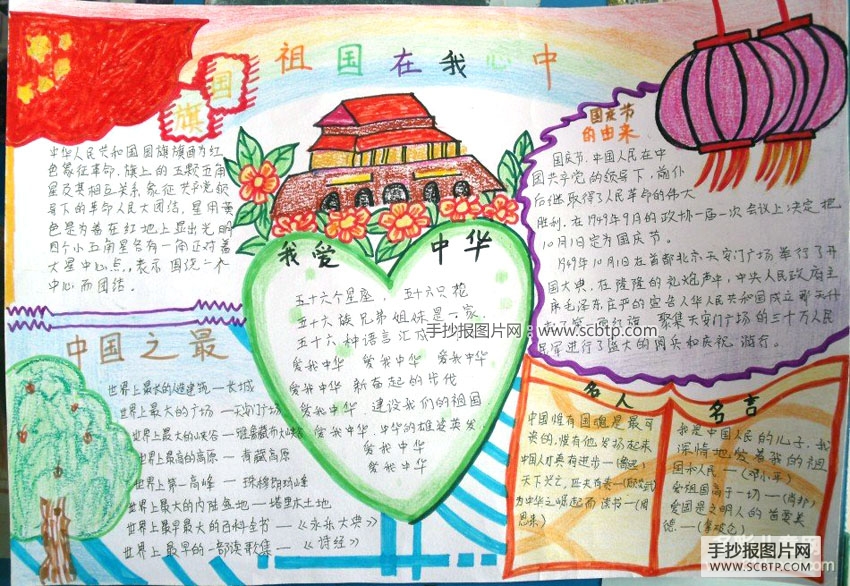 祖国在我心中
国旗
中华人民共和国国旗旗面为红
色象征革命,旗上的五颗五角
星及其相互关系象征共产党领
导下的革命人民大团结。星用黄
色是为着在红地上显出光明
四个小五角星各有一角正对着
大星中心点,表示围绕一个
中心而团结。
国庆节
的由来
国庆节,中国人民在中
国共产党的领导下,前仆
后继取得了人民革命的伟大
胜利,在1949年9月的政协一届一次会议上决定把
10月1日定为国庆节。
1949年10月1日在首都北京天安门广场举行了开
国大典,在隆隆的礼炮声中,中央人民政府主
席毛泽东庄严的宣告人华人民共和国成立那天什
聚集天安门广场的三十万人民
军进行了盛大的阅兵和庆祝游行。
我爱中华
五十六个星座,五十六只花
五十六族兄弟姐妹是一家
五十六种语言汇成
爱我中华 爱我中华 爱我中华
爱我中华 新奋起的步伐
爱我中华 建设我们的祖国
爱我中华,中华的雄姿英发
爱我中华
爱我中华
手抄报图片网:www.scbtp.com
中国之最
世界上最大的人造建筑—长城
世界上最大的广场—天安门广场
世界上最大的峡谷—雅鲁藏布大峡谷
世界上最高的高原—青藏高原
世界上第一高峰—珠穆朗玛峰
世界上最大的内陆盆地—塔里木土地
世界上最早最大的百科全书—《永乐大典》
世界上最早的一部诗歌集—《诗经》
名人
中国惟有国魂是最可
贵的,惟有他发扬起来
中国人才真有进步—(鲁迅)
天下兴亡,匹夫有责—(顾炎武)
为中华之崛起而读书—(周
恩来)
名言
我是中国人民的儿子,我
深情地爱着我的祖
国和人民—(邓小平)
爱祖国高于一切—(肖邦)
爱国是文明人的首要美
德—(拿破仑)
手抄报图片网
WWW.SCBTP.COM